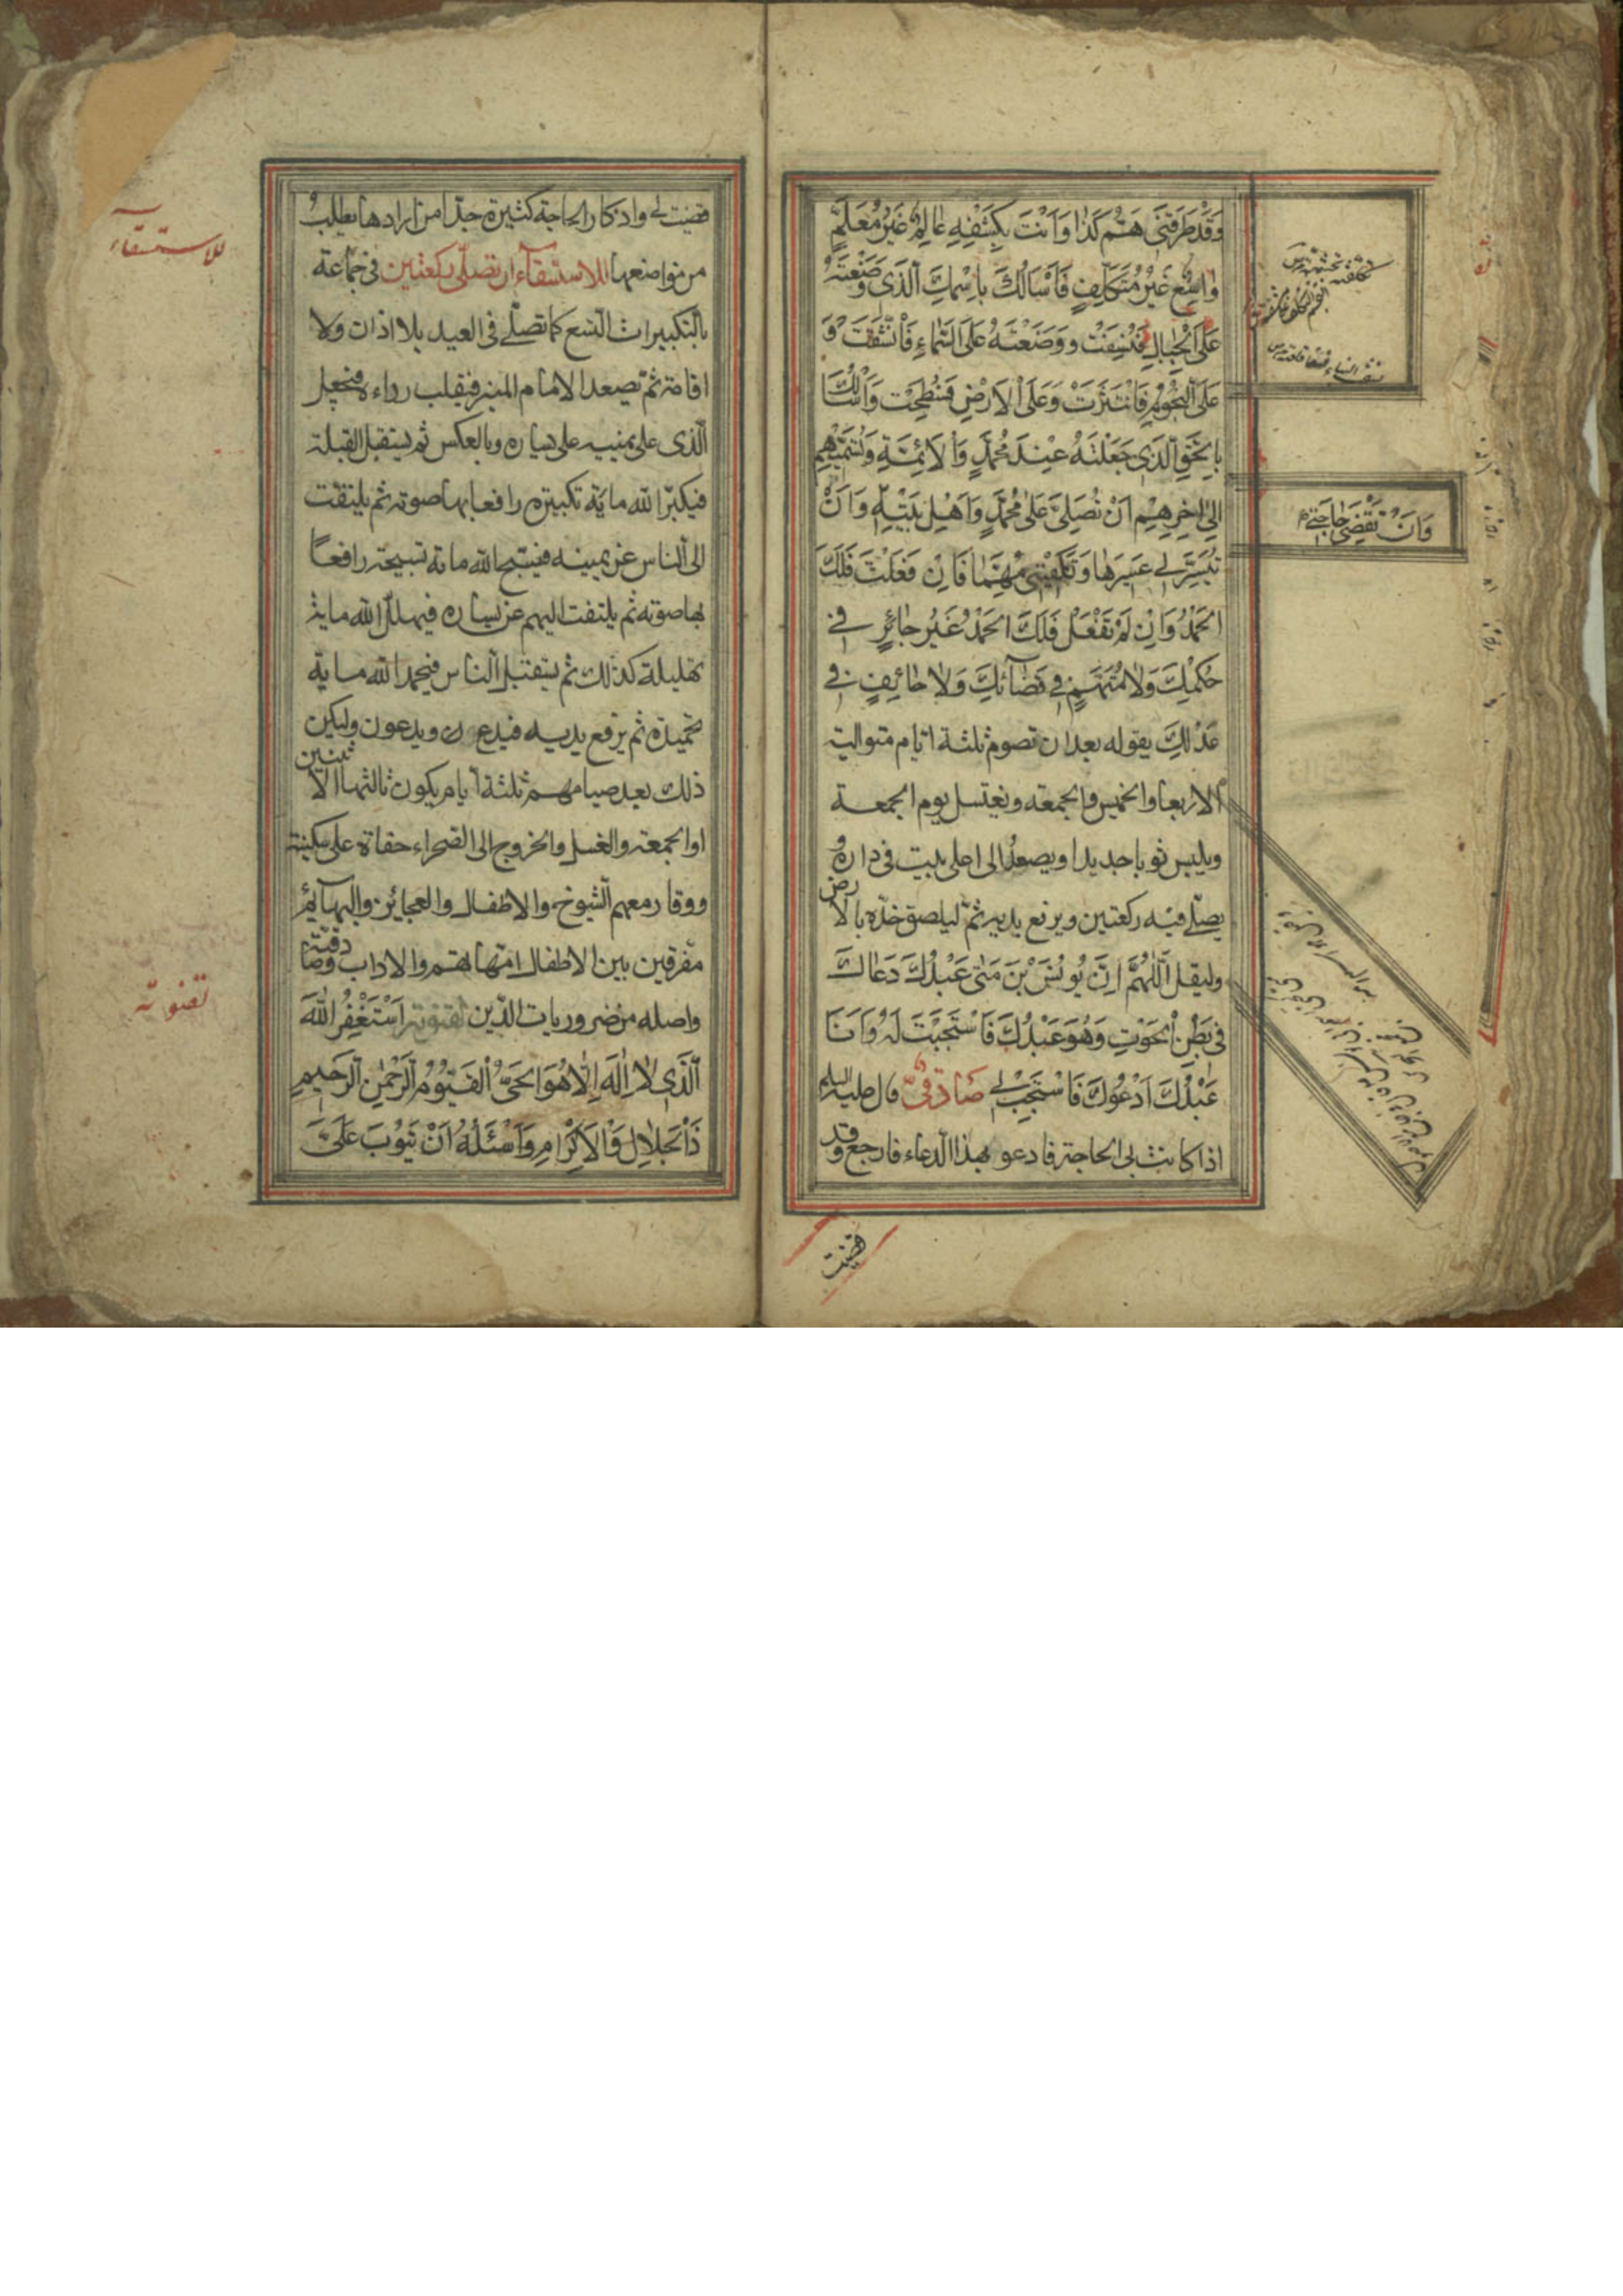 وَقَدْ طَرَقَنِی هَمُّ كَذَا وَاَنْتَ بِكَشْفِهِ عَالِمٌ غَيْرُ مُعَلَّمٍ
وَاسِعٌ غَيْرُ مُتَكَلِّفٍ فَاَسْاَلُكَ بِاسْمِكَ الَّذِی وَضَعْتَهُ
عَلَی الْجِبَالِ فَنُسِفَتْ وَوَضَعْتَهُ عَلَی السَّمَاءِ فَانْشَقَّتْ وَ
عَلَی النُّجُومِ فَانْتَثَرَتْ وَعَلَی الْاَرْضِ فَسُطِحَتْ وَاَسْاَلُكَ
بِالْحَقِّ الَّذِی جَعَلْتَهُ عِنْدَ مُحَمَّدٍ وَالْاَئِمَّةِ وَتُسَمِّيهِمْ
اِلیٰ اٰخِرِهِمْ اَنْ تُصَلِّیَ عَلیٰ مُحَمَّدٍ وَاَهْلِ بَيْتِهِ وَاَنْ
تُيَسِّرَ لِی عَسِيرَهَا وَتَكْفِيَنِی مُهِمَّهَا فَاِنْ فَعَلْتَ فَلَكَ
الْحَمْدُ وَاِنْ لَمْ تَفْعَلْ فَلَكَ الْحَمْدُ غَيْرُ جَائِرٍ فِی
حُكْمِكَ وَلَا مُتَّهَمٍ فِی قَضَائِكَ وَلَا حَائِفٍ فِی
عَدْلِكَ يقوله بعد ان تصوم ثلثة ايام متوالية
الاربعا والخميس والجمعة ويغتسل يوم الجمعة
ويلبس ثوبا جديدا ويصعد الی اعلی بيت فی داره و
يصلّی فيه ركعتين ويرفع يديه ثمّ ليلصق خدّه بالارض
وليقل اَللّٰهُمَّ اِنَّ يُونُسَ بْنَ مَتّیٰ عَبْدُكَ دَعَاكَ
فِی بَطْنِ الْحُوتِ وَهُوَ عَبْدُكَ فَاسْتَجَبْتَ لَهُ وَاَنَا
عَبْدُكَ اَدْعُوكَ فَاسْتَجِبْ لِی صَادِقِیّ قال عليه السلم
اذا كانت لی الحاجة فادعو بهذا الدعاء فارجع وقد
وَاَنْ تَقْضِیَ حَاجَتِی
قضيت
قضيت لی واذكار الحاجة كثيرة جدّا من ارادها يطلب
من مواضعها للاستسقاء ان تصلّی ركعتين فی جماعة
بالتكبيرات التسع كما تصلّی فی العيد بلا اذان ولا
اقامة ثمّ يصعد الامام المنبر فيقلب رداءه فيجعل
الّذی علی يمينه علی يساره وبالعكس ثم يستقبل القبلة
فيكبّر الله مائة تكبيرة رافعا بها صوته ثم يلتفت
الی الناس عن يمينه فيسبّح الله مائة تسبيحة رافعًا
بها صوته ثم يلتفت اليهم عن يساره فيهلّل الله ماية
تهليلة كذلك ثم يستقبل الناس فيحمد الله ماية
تحميدة ثم يرفع يديه فيدعو ويدعون وليكن
ذلك بعد صيامهم ثلثة ايام يكون ثالثها الاثنين
او الجمعة والغسل والخروج الی الصحراء حفاة علی سكينة
ووقار معهم الشيوخ والاطفال والعجائز والبهايم
مفرقين بين الاطفال امّهاتهم والاداب
واصله من ضروريات الدّين لقنوته اَسْتَغْفِرُ اللّٰهَ
الَّذِی لَا اِلٰهَ اِلَّا هُوَ الْحَیُّ الْقَيُّومُ الرَّحْمٰنُ الرَّحِيمِ
ذَا الْجَلَالِ وَالْاِكْرَامِ وَاَسْئَلُهُ اَنْ يَتُوبَ عَلَیَّ
للاستسقاء
لقنوته